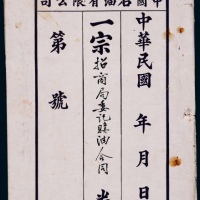 中國石油有限公司
中華民國　年　月　日
一宗招商局委託購油合同　卷
第　號